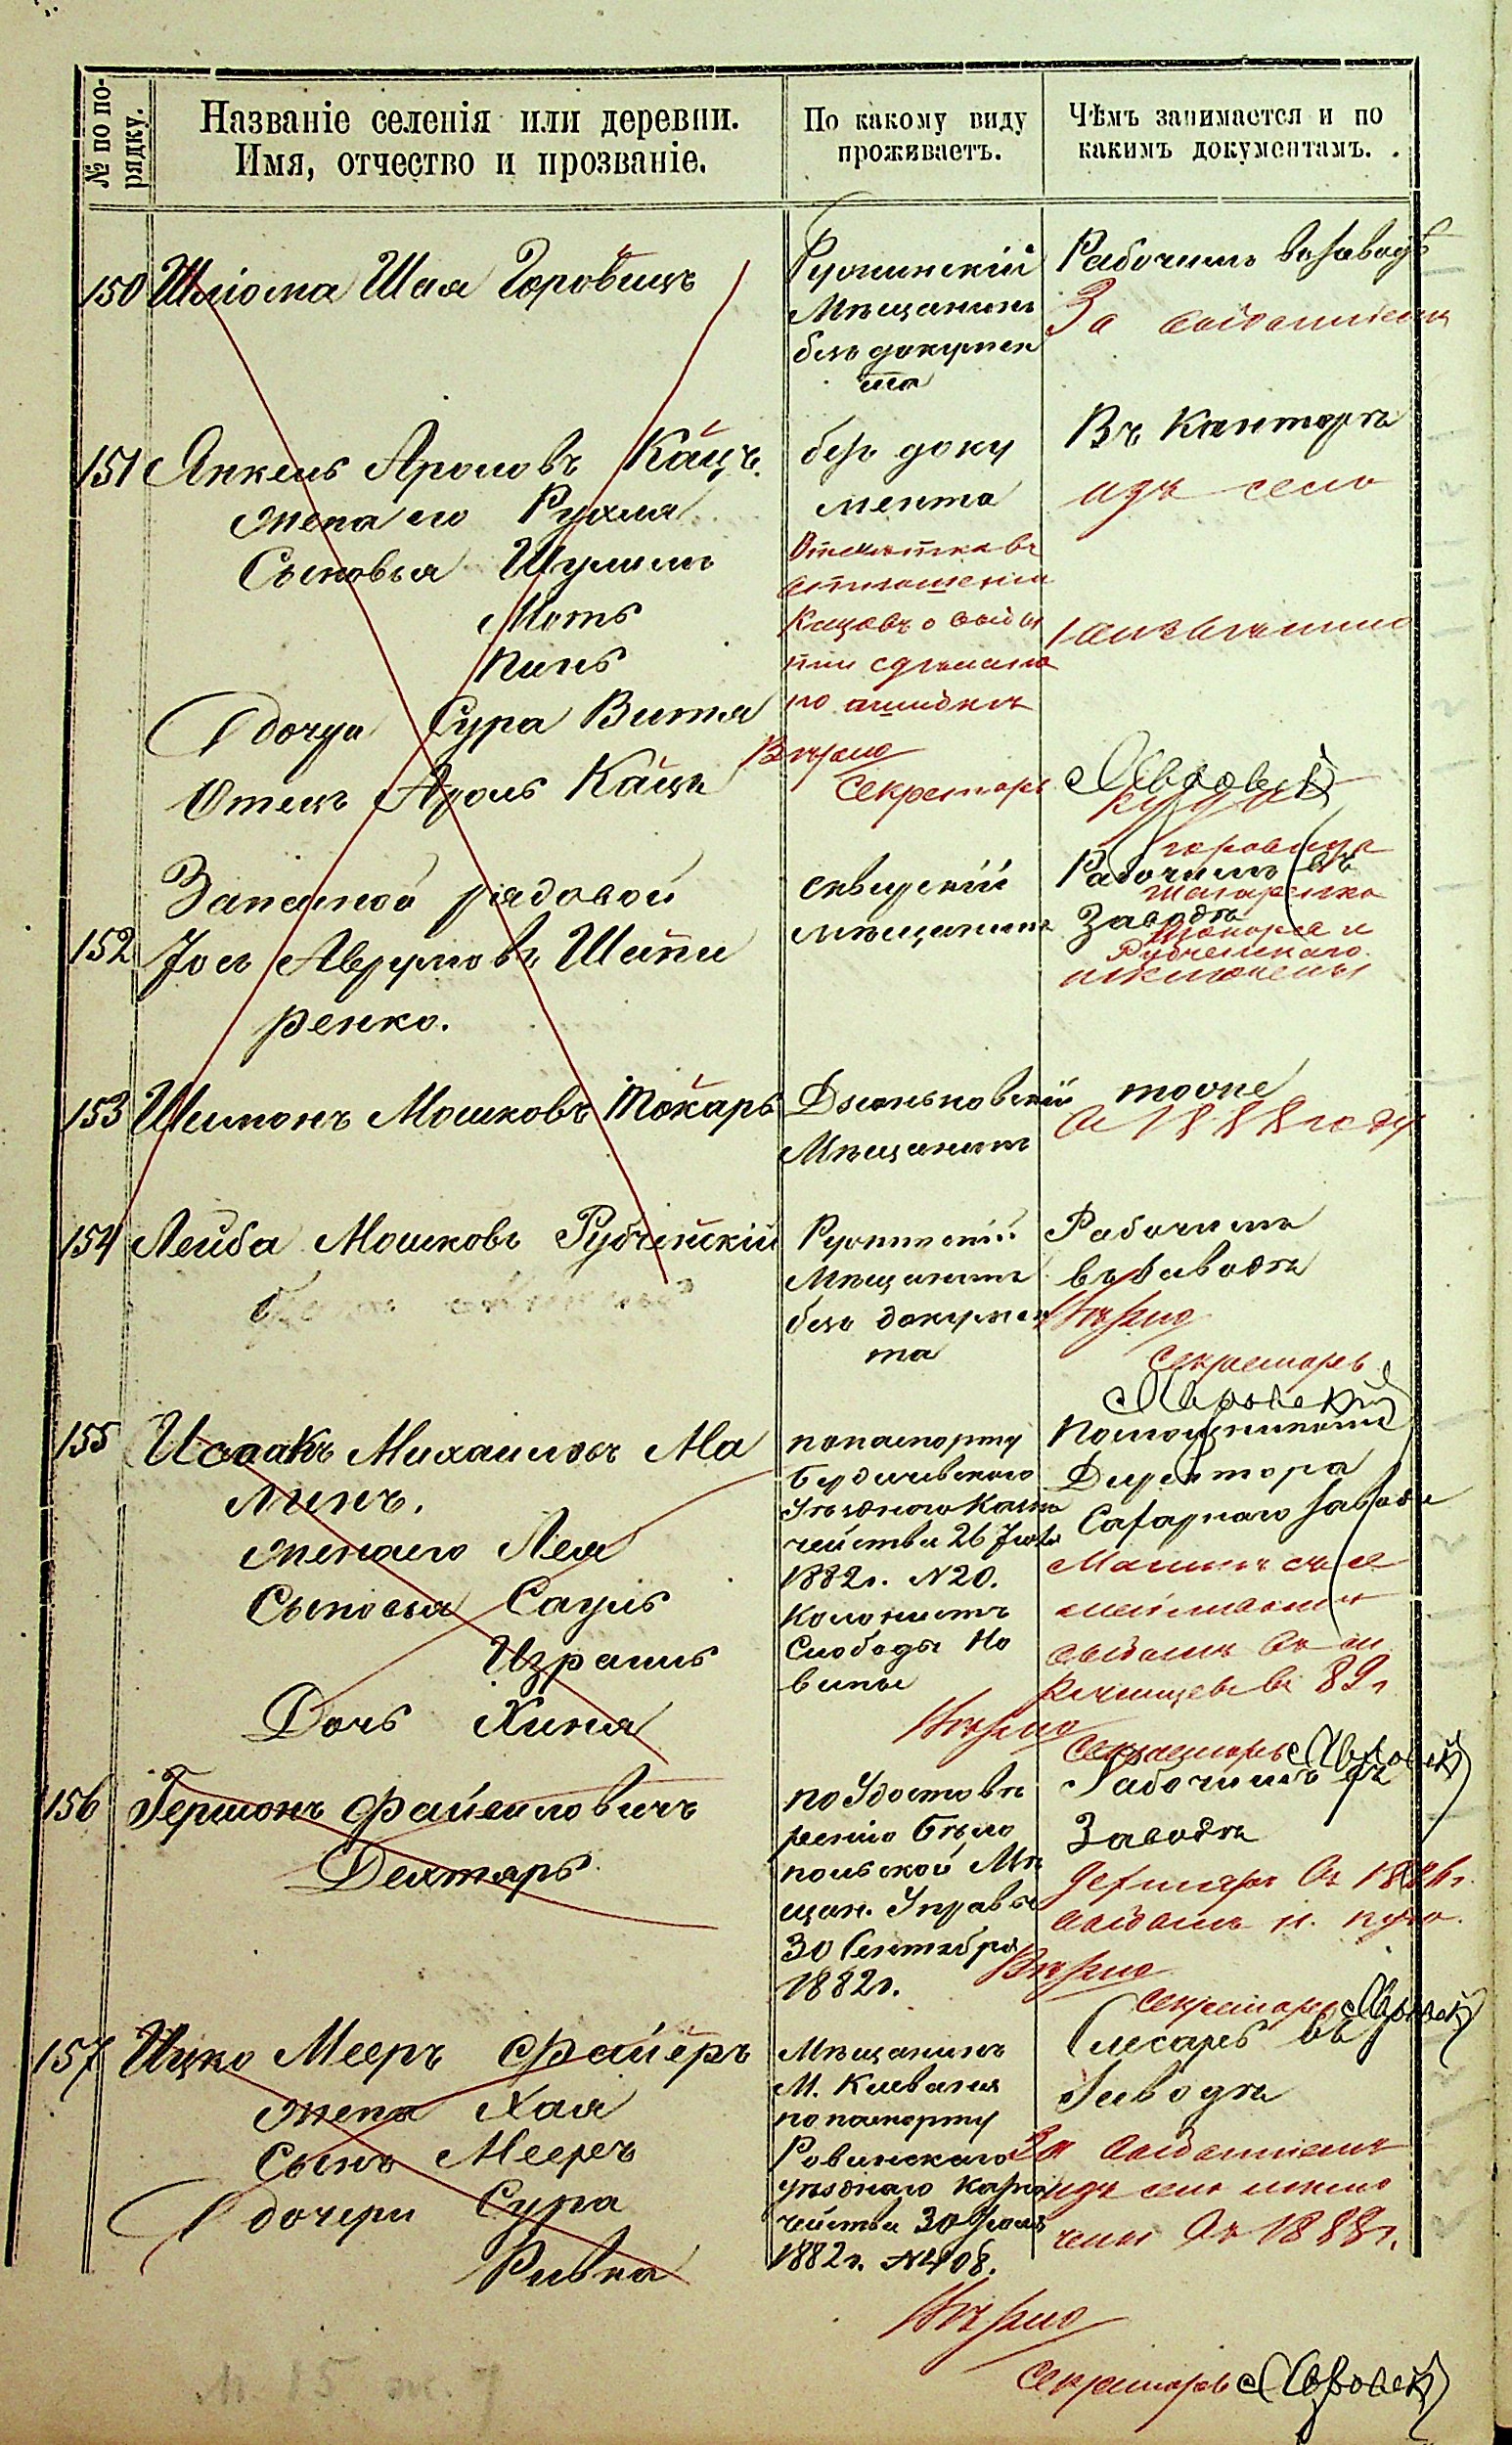 № по порядку.
Названіе селенія или деревни.
Имя, отчество и прозваніе.
По какому виду
проживаетъ.
Чѣмъ занимается и по
какимъ документамъ.
150 Шліома Шая Горовецъ
Ружинскій
Мѣщанинъ
безъ докумен
та
Рабочимъ въ Заводѣ
За выбытіемъ
151 Янкель Ароновъ Кацъ
жена его Рухля
Сыновья Шулимъ
Моть
Пинь
дочери Сура Витя
Отецъ Аронь Кацъ
безъ доку
мента
Отмѣтка въ
отношеніи
Кацовъ о выбы
тіи сдѣлана
по ошибкѣ
Вѣрно
Секретарь
Въ Канторѣ
изъ села
исключены
Запасной рядовой
152 Іось Аврумовъ Шапи
ренко.
сквирскій
мѣщанинъ
Рабочимъ въ
Заводѣ
Горовица
Токаря и
Рубчинскаго
исключены
153 Шимонъ Мошковъ Токарь
Дзюньковскій
Мѣщанинъ
тоже
въ 1888 году
154 Лейба Мошковъ Рубчинскій
Ружинскій
Мѣщанинъ
безъ докумен
та
Рабочимъ
въ Заводѣ
Вѣрно
Секретарь
155 Исаакъ Михаиловъ Ма
линъ.
жена его Лея
Сыновья Сауль
Израиль
Дочь Хиня
по паспорту
Бердичевскаго
Уѣзднаго Казна
чейства 26 Іюля
1882г. №20.
Колонистъ
Слободы Но
вины
Вѣрно
Помощникомъ
Директора
Сахарнаго Завода
Малинъ съ се
мействомъ
выбылъ въ м
89 г
Секретарь
156 Гершонъ Файвиловичъ
Дехтярь
по Удостовѣ
ренію Бѣло
польской Мѣ
щан. Управы
30 Сентября
1882г.
Рабочимъ въ
Заводѣ
Дехтярь въ 1886г.
выбылъ
Вѣрно
Секретарь
157 Ицко Мееръ Файеръ
жена Хая
Сынъ Мееръ
дочери Сура
Ривка
Мѣщанинъ
М. Клеваня
по паспорту
Ровенскаго
уѣзднаго Казна
чейства 30 Іюля
1882г. №408.
Слесарь въ
Заводѣ
За выбытіемъ
изъ села исклю
чены въ 1888г.
Вѣрно
Секретарь